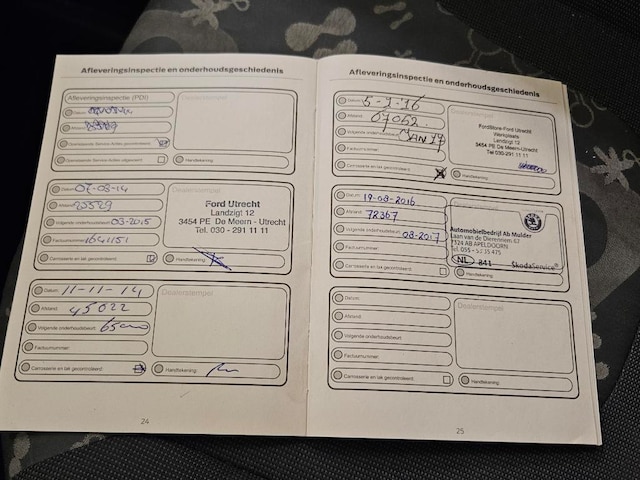 Afleveringsinspectie en onderhoudsgeschiedenis
Afleveringsinspectie (PDI)
Datum:
Afstand:
Openstaande Service-Acties gecontroleerd:
Openstaande Service-Acties uitgevoerd:
Dealerstempel
Handtekening:
Datum: 07-08-14
Afstand: 23529
Volgende onderhoudsbeurt: 03-2015
Factuurnummer: 1641151
Carrosserie en lak gecontroleerd:
Dealerstempel
Ford Utrecht
Landzigt 12
3454 PE De Meern - Utrecht
Tel. 030 - 291 11 11
Handtekening:
Datum: 11-11-14
Afstand: 45022
Volgende onderhoudsbeurt: 65000
Factuurnummer:
Carrosserie en lak gecontroleerd:
Dealerstempel
Handtekening:
24
Afleveringsinspectie en onderhoudsgeschiedenis
Datum: 5-1-16
Afstand: 67062
Volgende onderhoudsbeurt: JAN 17
Factuurnummer:
Carrosserie en lak gecontroleerd:
FordStore-Ford Utrecht
Werkplaats
Landzigt 12
3454 PE De Meern-Utrecht
Tel 030-291 11 11
Handtekening:
Datum: 19-08-2016
Afstand: 72367
Volgende onderhoudsbeurt: 08-2017
Factuurnummer:
Carrosserie en lak gecontroleerd:
Automobielbedrijf Ab Mulder
Laan van de Dierenriem 67
7324 AB APELDOORN
Tel. 055 -
NL 841 ŠkodaService
Handtekening:
Datum:
Afstand:
Volgende onderhoudsbeurt:
Factuurnummer:
Carrosserie en lak gecontroleerd:
Dealerstempel
Handtekening:
25